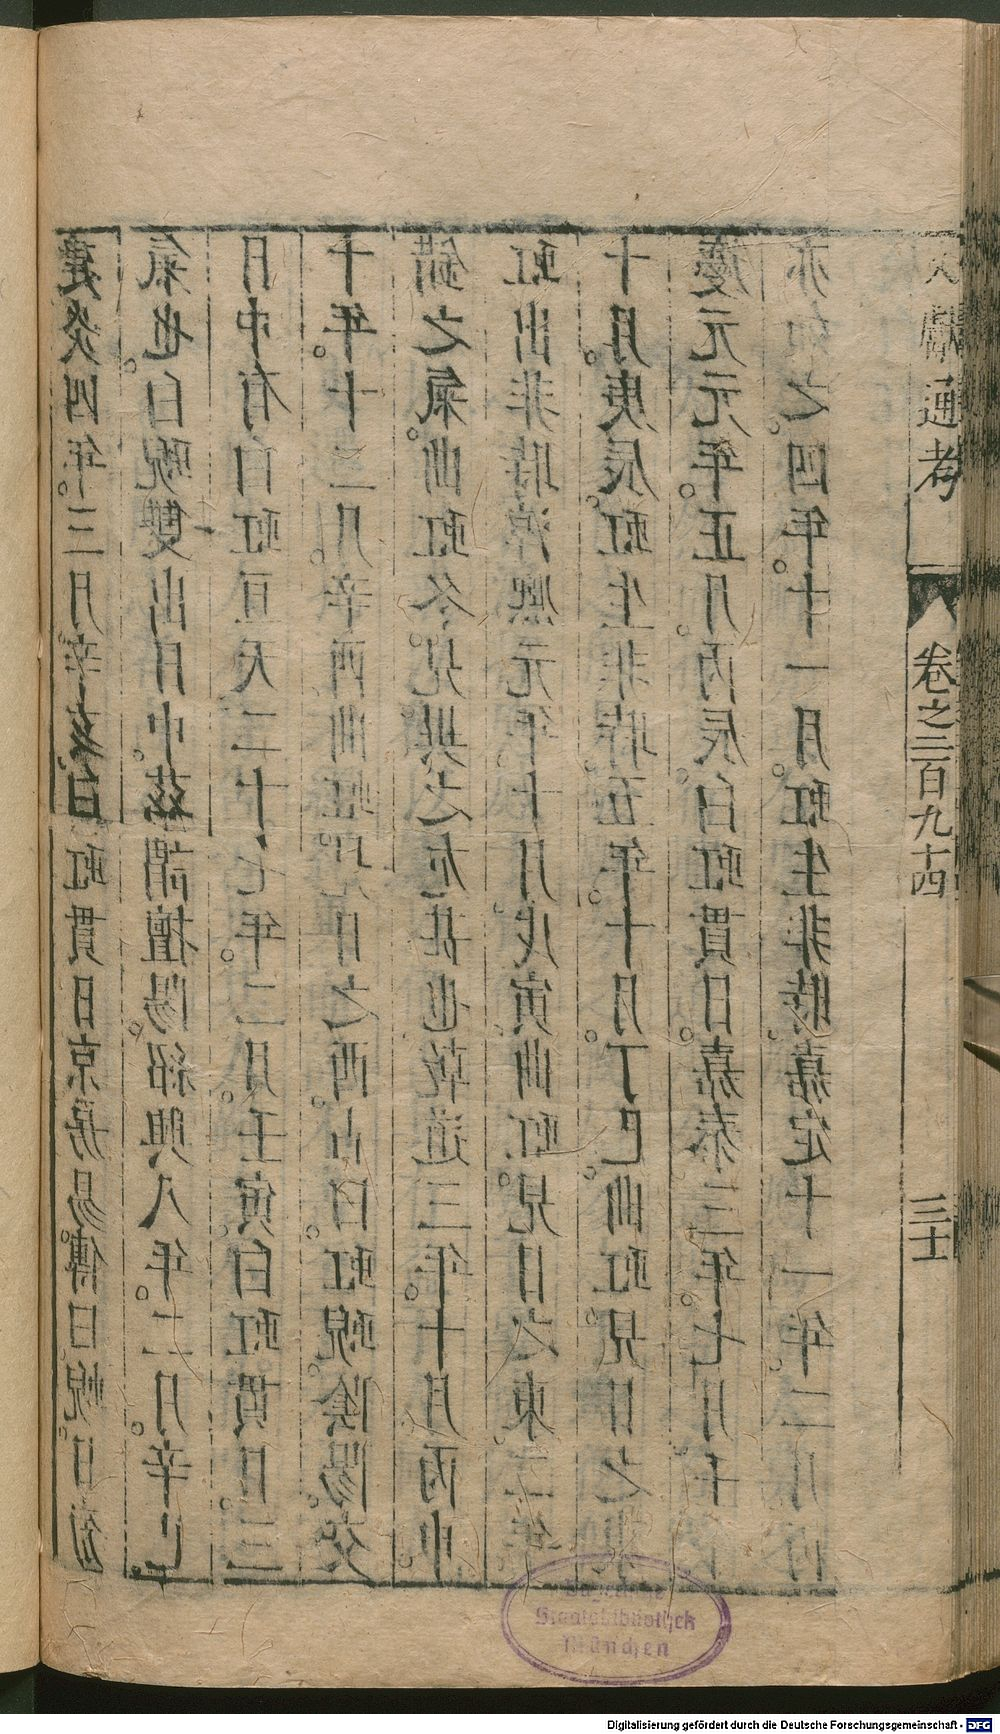 建炎四年三月辛亥白虹貫日京房易傳曰蜺日旁
氣也白蜺雙出日中茲謂擅陽紹興八年二月辛巳
月中有白虹亘天二十七年二月壬寅白虹貫日三
十年十二月辛酉曲虹見日之西占曰虹蜺陰陽交
錯之氣曲虹冬見與之尤甚也乾道三年十月丙申
虹出非時淳熙元年十月戊寅曲虹見日之東三年
十月庚辰虹生非時五年十月丁巳曲虹見日之東
慶元元年正月丙辰白虹貫日嘉泰三年七月壬
亦如之四年十一月虹生非時嘉定十一年二月丙
文獻通考
卷之二百九十四
三十
Bayerische
Staatsbibliothek
München
Digitalisierung gefördert durch die Deutsche Forschungsgemeinschaft - DFG